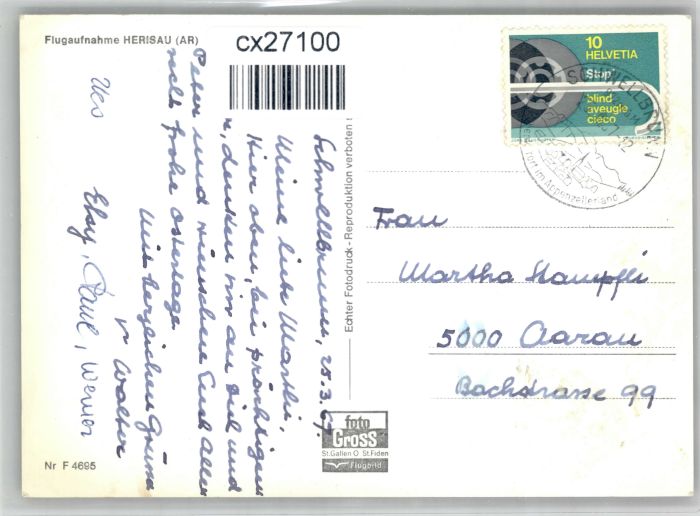 Flugaufnahme HERISAU (AR)
cx27100
Schwellbrunn, 25.3.67.
Meine liebe Marthi,
Hier oben, bei prächtigem
denken wir an Dich und
Peter und wünschen Euch allen
recht frohe Ostertage.
Mit herzlichen Grüssen
Walter
Elsy, Paul, Werner
Ueo
Nr F 4695
Echter Fotodruck - Reproduktion verboten
foto
Gross
St.Gallen O St.Fiden
Flugbild
10
HELVETIA
Stop
blind
aveugle
cieco
SCHWELLBRUNN
im Appenzellerland
Frau
Martha Stampfli
5000 Aarau
Bachstrasse 99